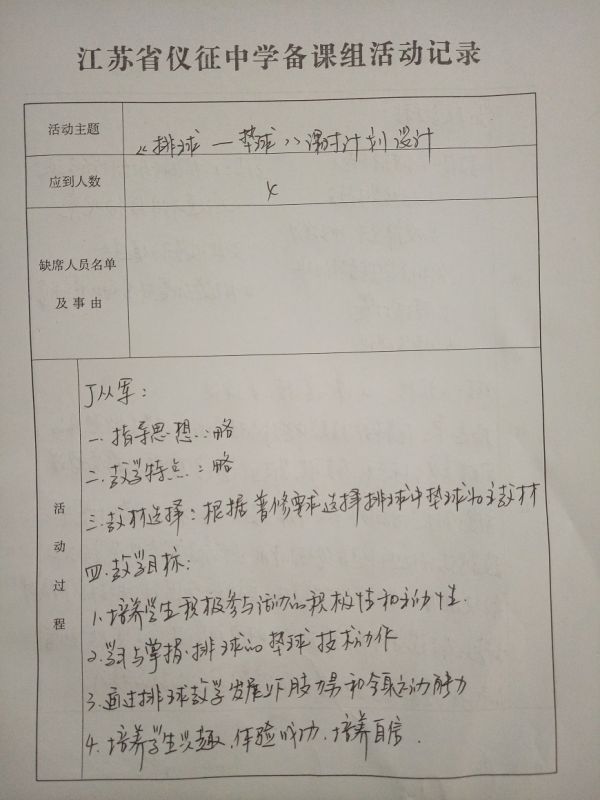 江苏省仪征中学备课组活动记录
活动主题
《排球—垫球》课时计划设计
应到人数
缺席人员名单
及事由
活动过程
丁从军：
一.指导思想：略
二.教学特点：略
三.教材选择：根据普修要求选择排球中垫球为主教材
四.教学目标：
1.培养学生积极参与活动的积极性和主动性.
2.学习与掌握排球的垫球技术动作
3.通过排球教学发展上下肢力量和全身运动能力
4.培养学生兴趣,体验成功.培养自信.